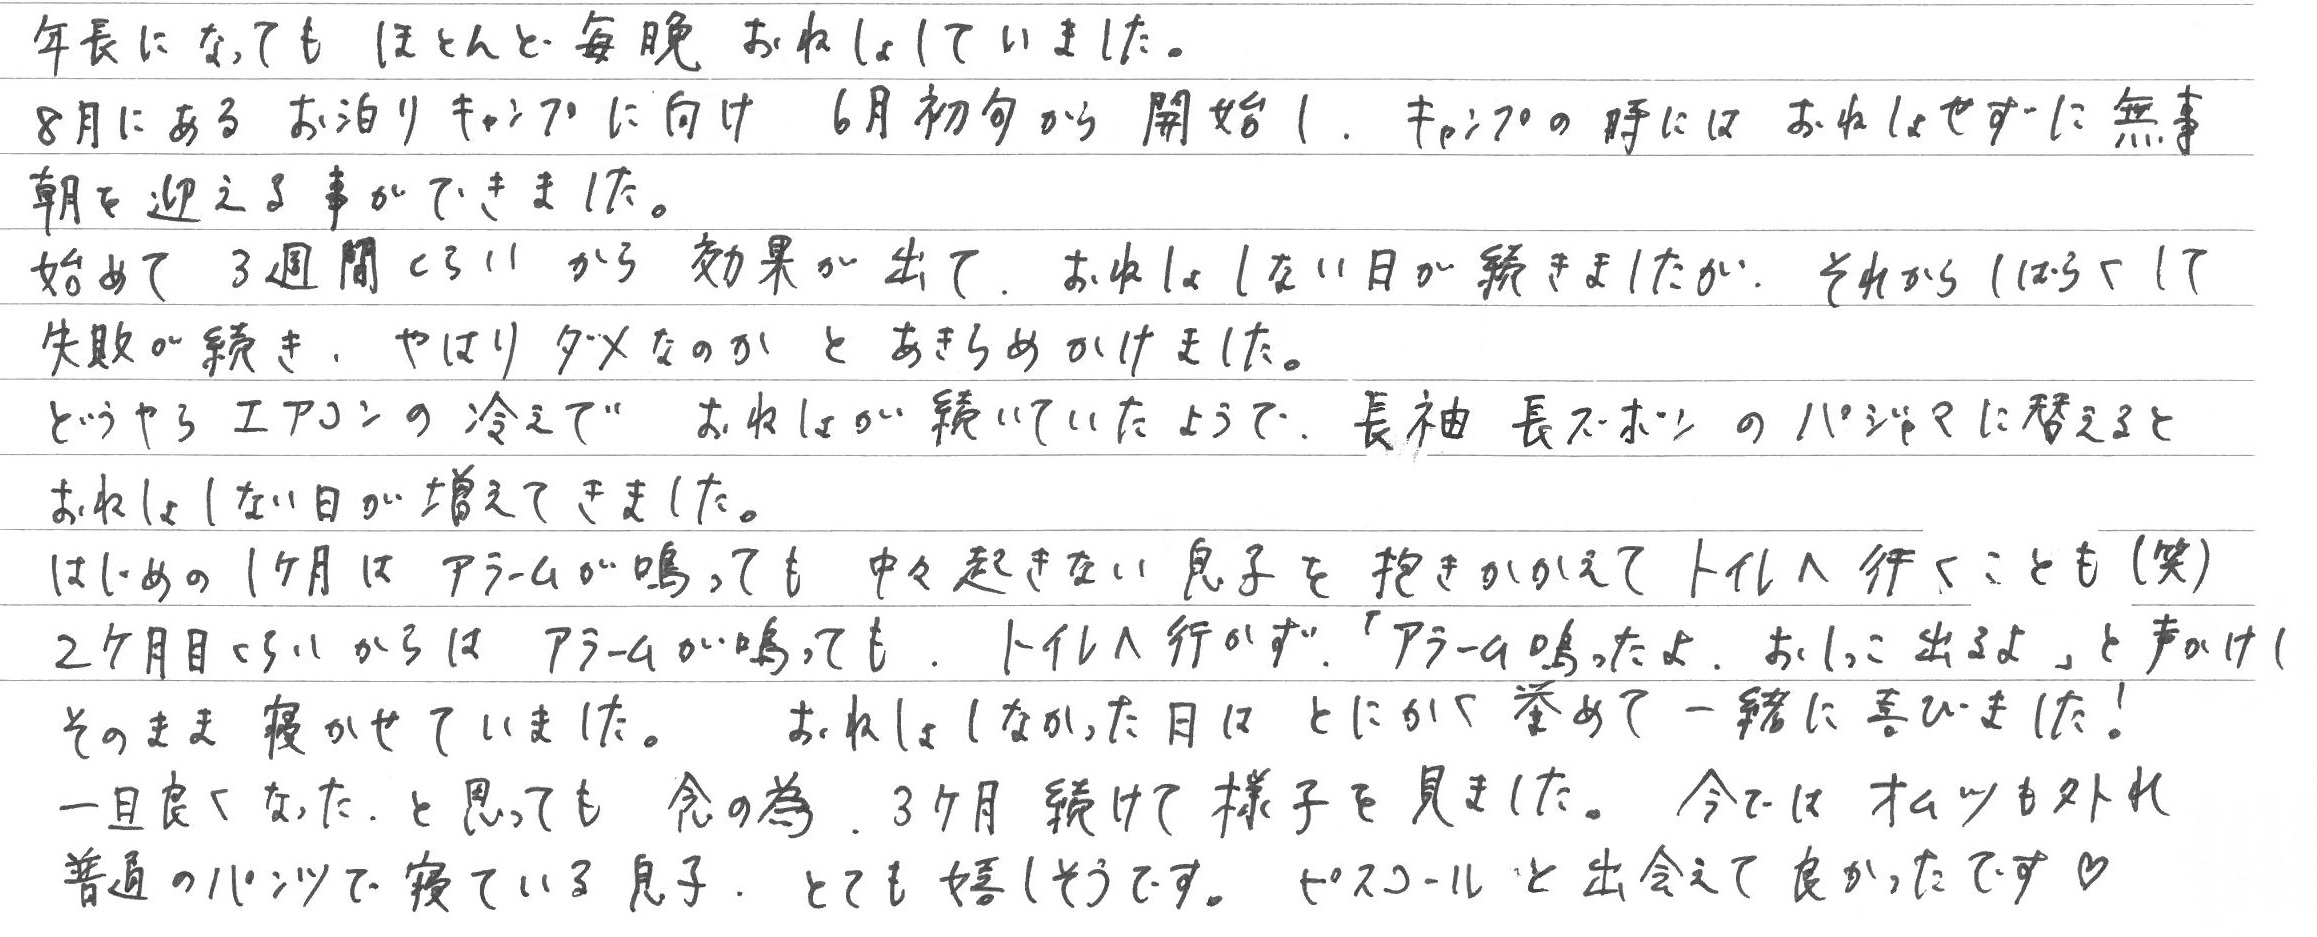 年長になっても ほとんど毎晩 おねしょしていました。
8月にある お泊りキャンプに向け 6月初旬から 開始し、キャンプの時には おねしょせずに 無事
朝を迎える事ができました。
始めて 3週間くらいから 効果が出て、おねしょしない日が続きましたが、それからしばらくして
失敗が続き、やはりダメなのか と あきらめかけました。
どうやら エアコンの冷えで おねしょが続いていたようで、長袖 長ズボン のパジャマに替えると
おねしょしない日が増えてきました。
はじめの 1ケ月は アラームが鳴っても 中々起きない 息子を 抱きかかえて トイレへ 行くことも(笑)
2ケ月目くらいからは アラームが鳴っても、トイレへ行かず、「アラーム鳴ったよ、おしっこ出るよ」と声かけし
そのまま 寝かせていました。 おねしょしなかった日は とにかく誉めて 一緒に喜びました!
一旦良くなった、と思っても 念の為、3ケ月 続けて様子を見ました。 今では オムツも外れ
普通のパンツで寝ている息子、とても嬉しそうです。 ピスコールと出会えて良かったです♡